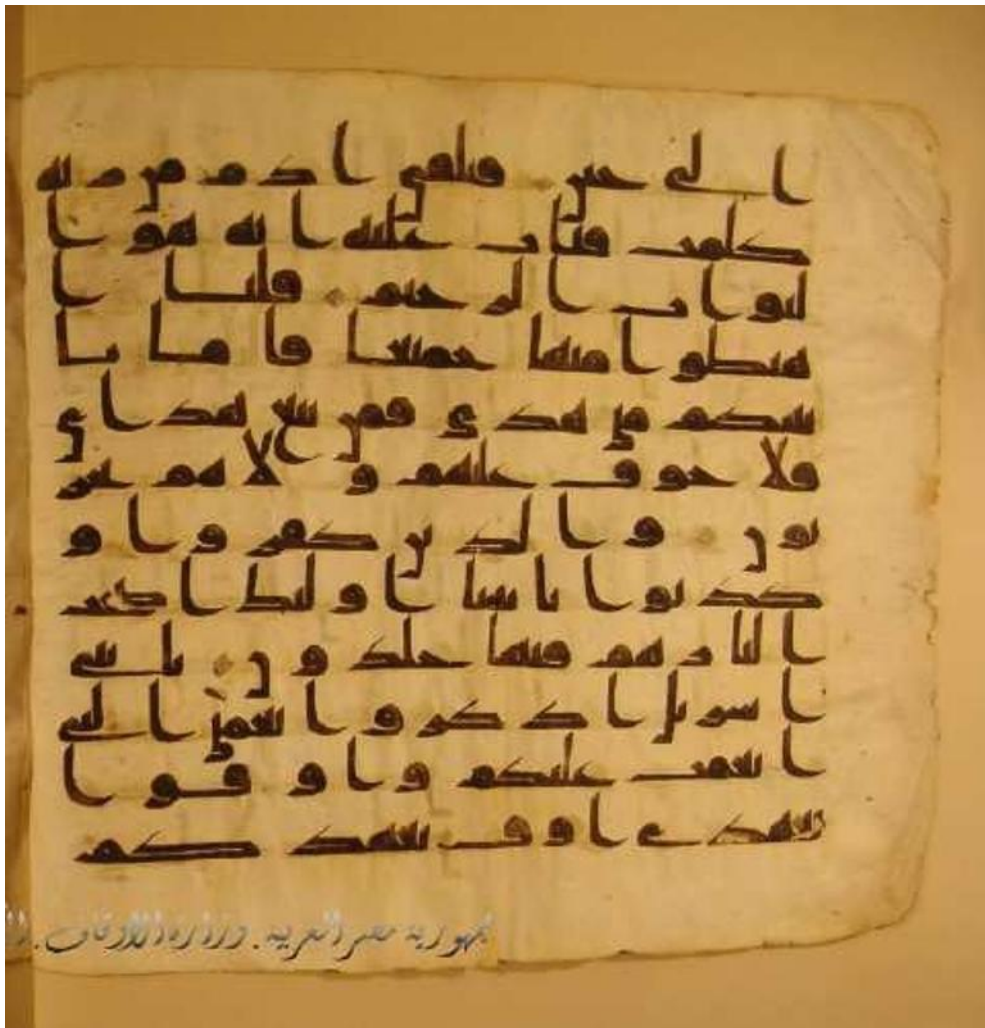 الى حين فتلقى ادم من ربه
كلمت فتاب عليه انه هو ا
لتواب الرحيم قلنا ا
هبطوا منها جميعا فاما يا
تينكم مني هدى فمن تبع هداي
فلا خوف عليهم ولا هم يحز
نون والذين كفروا و
كذبوا بايتنا اوليك اصحب
النار هم فيها خلدون يبني
اسريل اذكروا نعمتي التي
انعمت عليكم واوفوا
بعهدي اوف بعهدكم
جمهورية مصر العربية . وزارة الأوقاف .